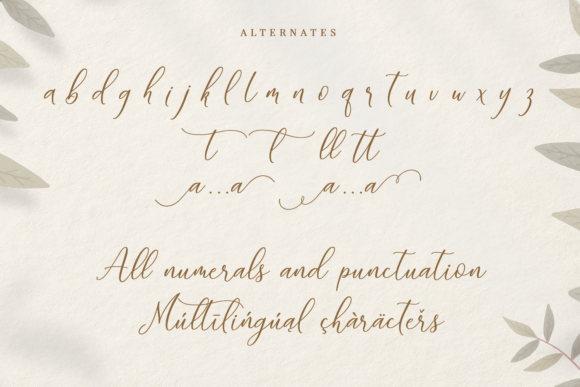 ALTERNATES
a b d g h i j k l l m n o q r t u v w x y z
t t ll tt
a...a a...a
All numerals and punctuation
Múltīlìńgúąl çhàräcteřs